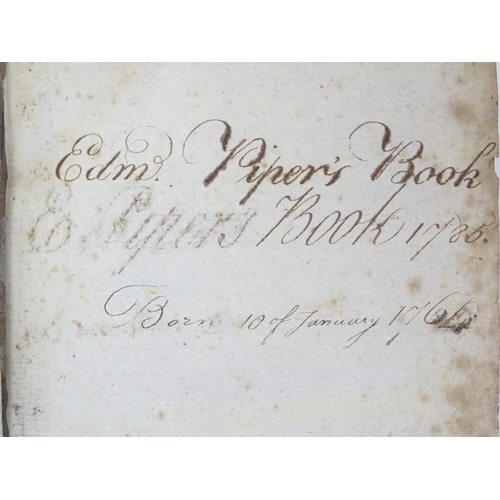 Edmd. Piper's Book
E Piper's Book 1785.
Born 10 of January